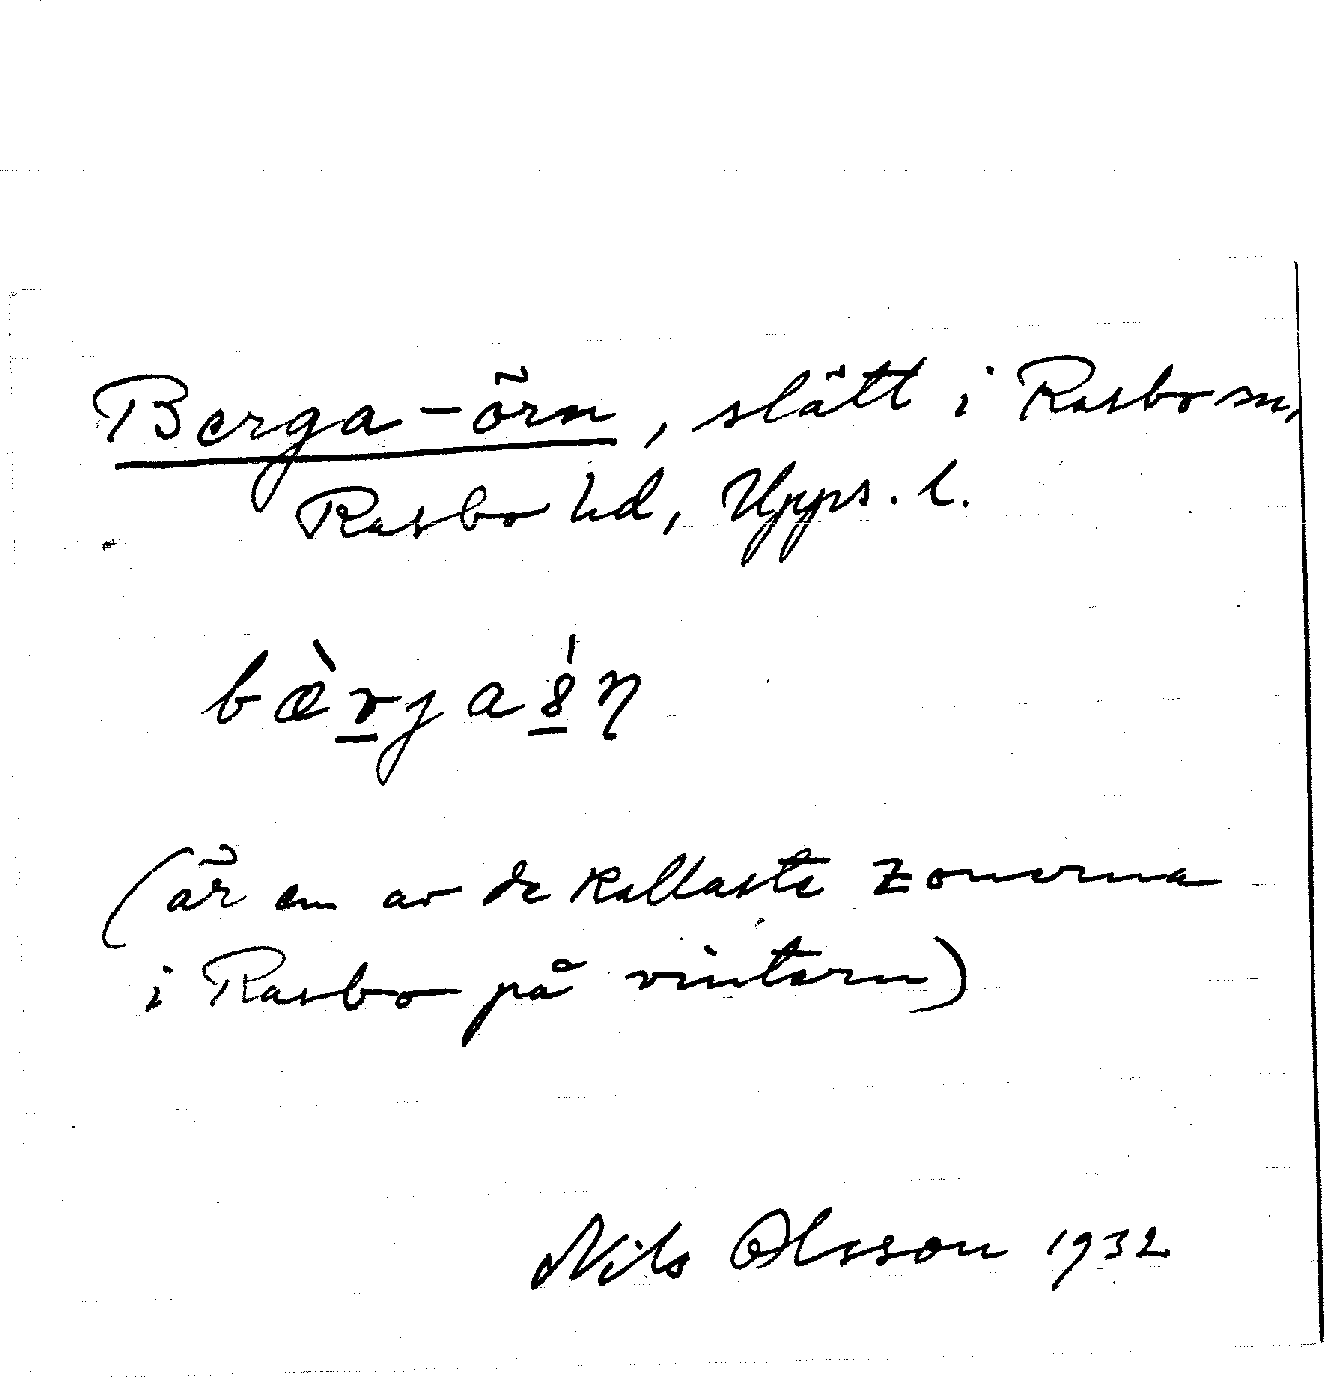 Berga-örn, slätt i Rasbo sn,
Rasbo hd, Upps. l.
bæ̀r̲jaś̲η
(är en av de kallaste zonerna
i Rasbo på vintern)
Nils Olsson 1932